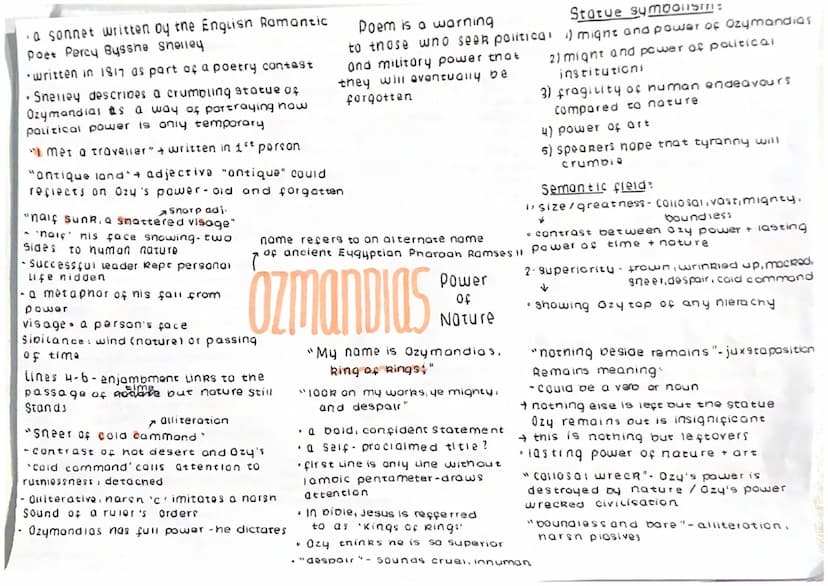 · a sonnet written by the English Romantic
Poet Percy Bysshe Shelley
· written in 1817 as part of a poetry contest
· Shelley describes a crumbling statue of
Ozymandias as a way of portraying how
political power is only temporary
"I met a traveller" → written in 1st person
"antique land" → adjective "antique" could
reflects on Ozy's power - old and forgotten
→ sharp adj.
"half sunk, a shattered visage"
- 'half' his face showing - two
sides to human nature
- successful leader kept personal
life hidden
- a metaphor of his fall from
power
visage = a person's face
sibilance: wind (nature) or passing
of time
Lines 4-6 - enjambment links to the
time
passage of but nature still
stands
→ alliteration
"sneer of cold command"
- contrast of hot desert and Ozy's
'cold command' calls attention to
ruthlessness, detached
- alliterative, harsh 'c' imitates a harsh
sound of a ruler's orders
- Ozymandias has full power - he dictates
Poem is a warning
to those who seek political
and military power that
they will eventually be
forgotten
name refers to an alternate name
of ancient Eygyptian Pharoah Ramses II
OZMANDIAS
Power
of
Nature
"My name is Ozymandias,
king of kings;"
"look on my works, ye mighty,
and despair"
· a bold, confident statement
· a self-proclaimed title?
· first line is only line without
iambic pentameter - draws
attention
· In bible, Jesus is reffered
to as 'kings of kings'
· Ozy thinks he is so superior
· "despair" - sounds cruel, inhuman
Statue symbolism:
1) might and power of Ozymandias
2) might and power of political
institutions
3) fragility of human endeavours
compared to nature
4) power of art
5) speakers hope that tyranny will
crumble
Semantic field:
1. size/greatness - collosal, vast, mighty,
boundless
· contrast between Ozy power + lasting
power of time + nature
2. superiority - frown, wrinkled up, mocked,
sneer, despair, cold command
· showing Ozy top of any hierachy
"nothing beside remains" - juxstaposition
Remains meaning:
- could be a verb or noun
→ nothing else is left but the statue
Ozy remains but is insignificant
→ this is nothing but leftovers
· lasting power of nature + art
"collosal wreck" - Ozy's power is
destroyed by nature / Ozy's power
wrecked civilisation
"boundless and bare" - alliteration,
harsh plosives